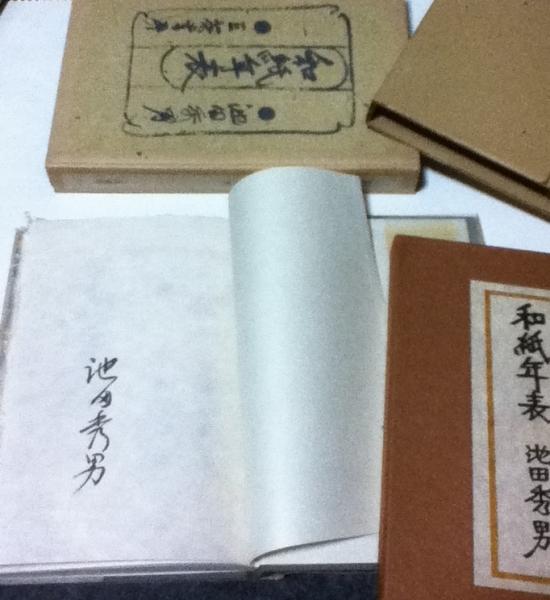 三茶書房
和紙年表
池田秀男
池田秀男
和紙年表 池田秀男